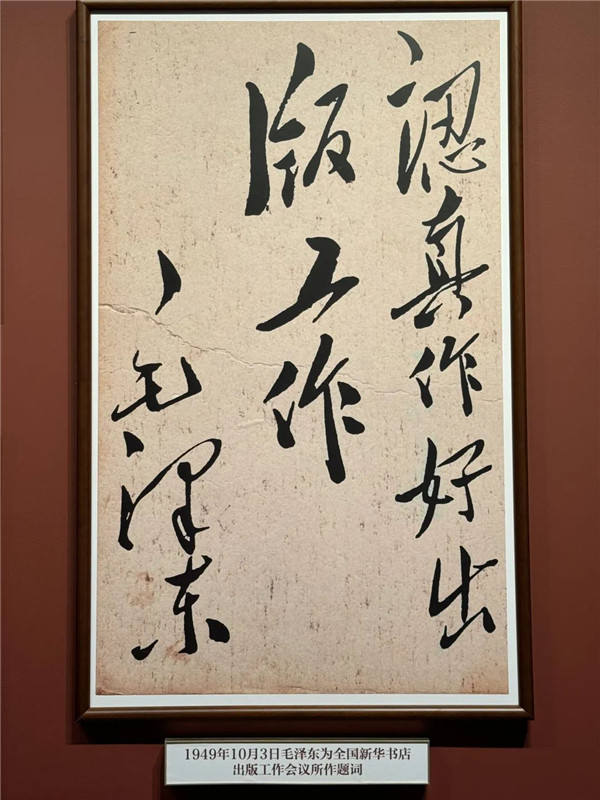 認真作好出
版工作
毛泽东
1949年10月3日毛泽东为全国新华书店
出版工作会议所作题词